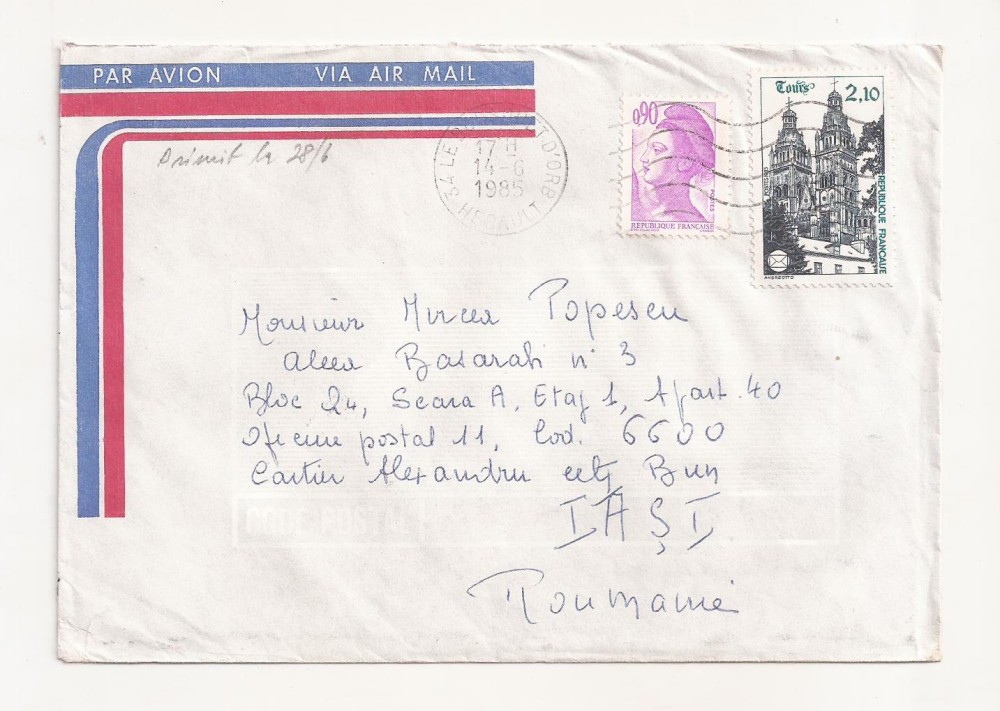 PAR AVION VIA AIR MAIL
Primit la 28/6
34 LE BOUSQUET D'ORB
17 H
14-6
1985
HERAULT
0,90
POSTES
REPUBLIQUE FRANÇAISE
Tours
2,10
POSTES
REPUBLIQUE FRANÇAISE
ANDREOTTO
Monsieur Mircea Popescu
Aleea Basarabi n° 3
Bloc 24, Scara A, Etaj 1, Apart. 40
Oficiul postal 11, Cod. 6600
Cartier Alexandru cel Bun
IAȘI
Roumanie
CODE POSTAL